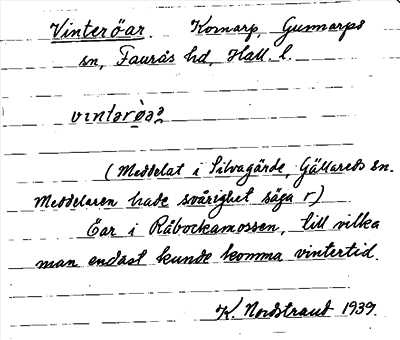 Vinteröar. Kornarp, Gunnarps
sn, Faurås hd, Hall. l.
(Meddelat i Silvagärde, Gällareds sn.
Meddelaren hade svårighet säga r)
Öar i Råbockamossen, till vilka
man endast kunde komma vintertid.
K. Nordstrand 1939.